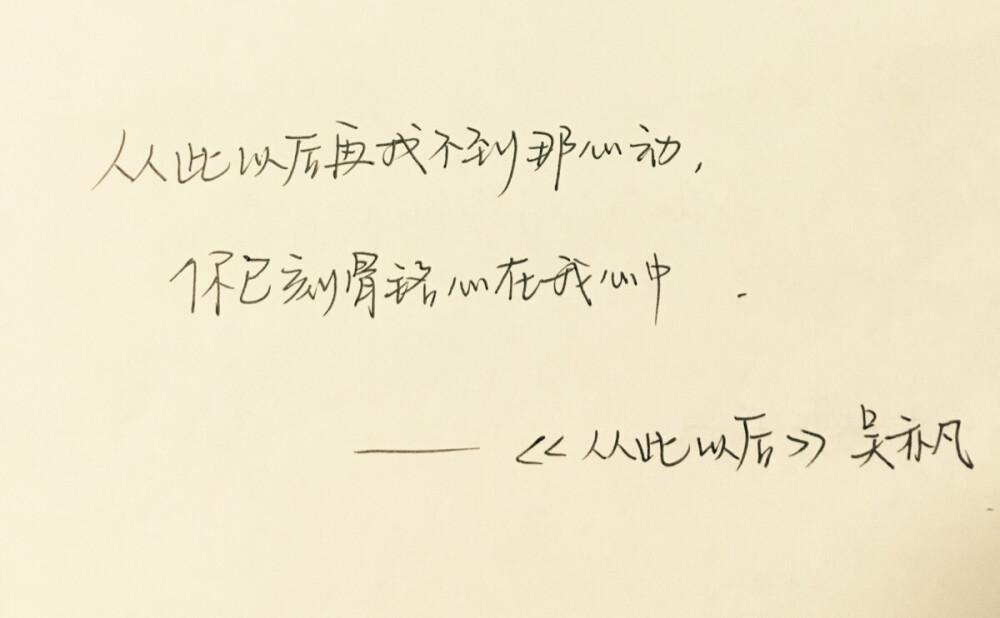 从此以后再找不到那心动,
你已刻骨铭心在我心中.
——<<从此以后>>吴亦凡